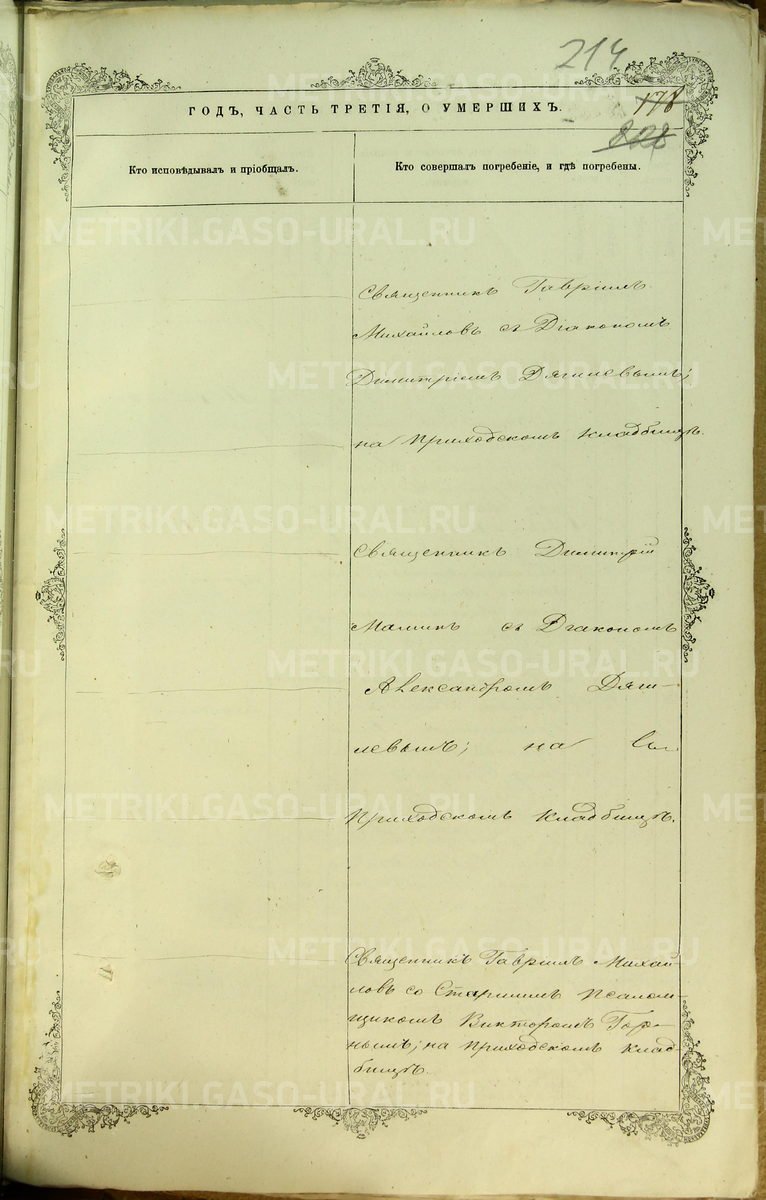 214.
ГОДЪ, ЧАСТЬ ТРЕТІЯ, О УМЕРШИХЪ.
178
208
Кто исповѣдывалъ и пріобщалъ.
Кто совершалъ погребеніе, и гдѣ погребены.
Священникъ Гавріилъ
Михайловъ съ Діакономъ
Димитріемъ Дягилевымъ;
на приходскомъ кладбищѣ.
Священникъ Димитрій
Маминъ съ Діакономъ
Александромъ Дяги-
левымъ; на
приходскомъ кладбищѣ.
Священникъ Гавріилъ Михай
ловъ со Старшимъ Псалом-
щикомъ Викторомъ Гор-
нымъ; на приходскомъ клад-
бищѣ.
METRIKI.GASO-URAL.RU